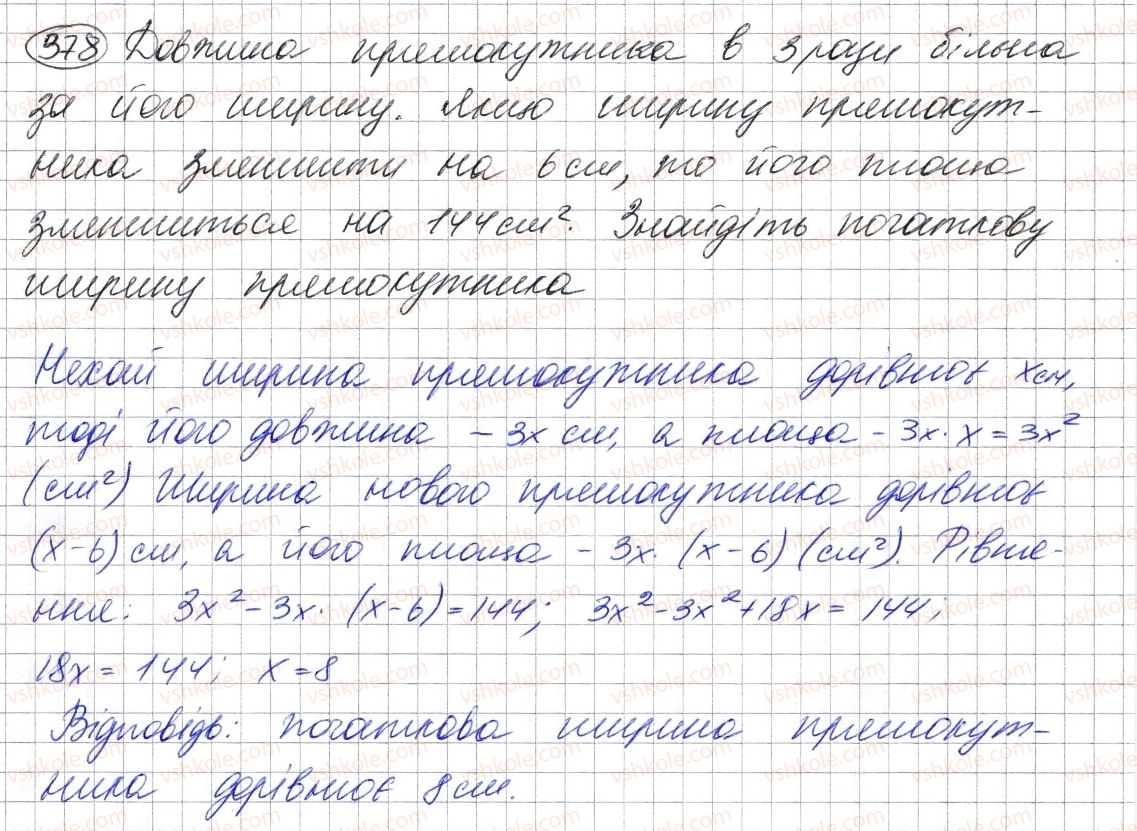 378 Довжина прямокутника в 3 рази більша
за його ширину. Якщо ширину прямокут-
ника зменшити на 6 см, то його площа
зменшиться на 144 см². Знайдіть початкову
ширину прямокутника
Нехай ширина прямокутника дорівнює x см,
тоді його довжина – 3x см, а площа – 3x · x = 3x²
(см²) Ширина нового прямокутника дорівнює
(x – 6) см, а його площа – 3x · (x – 6) (см²). Рівня-
ння: 3x² – 3x · (x – 6) = 144; 3x² – 3x² + 18x = 144;
18x = 144; x = 8
Відповідь: початкова ширина прямокут-
ника дорівнює 8 см.